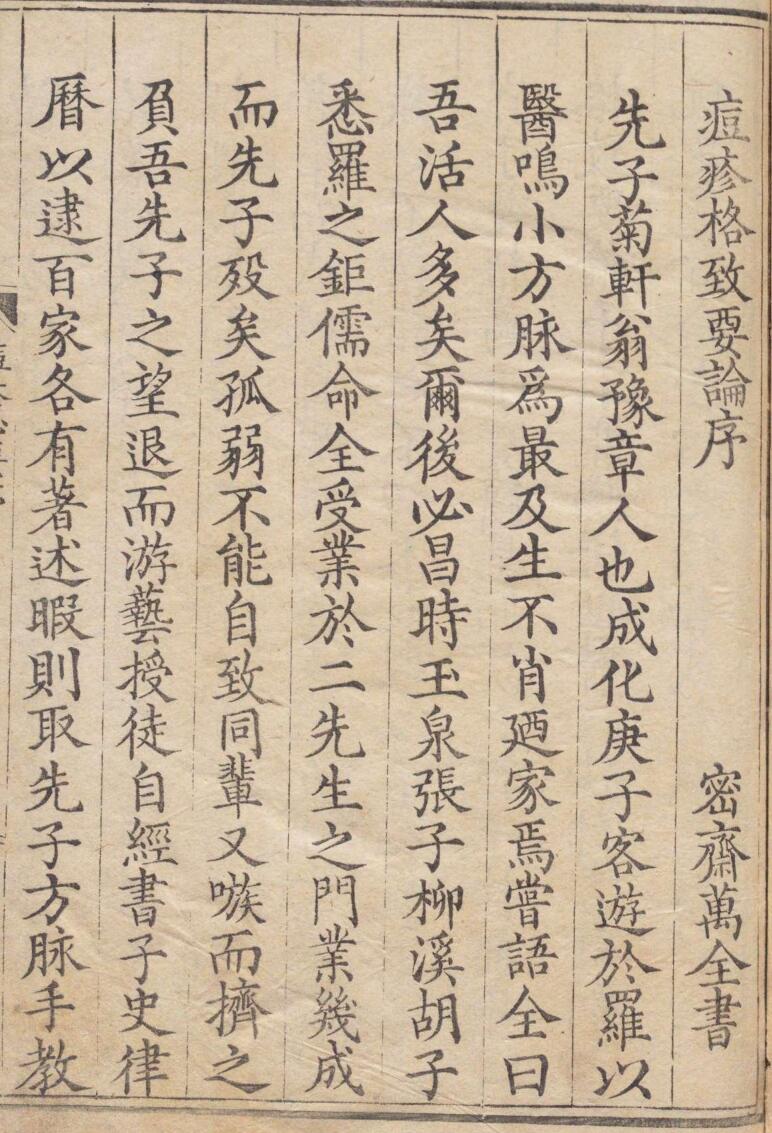 痘疹格致要論序 密齋萬全書
先子菊軒翁豫章人也成化庚子客遊於羅以
醫鳴小方脉爲最及生不肖廼家焉嘗語全曰
吾活人多矣爾後必昌時玉泉張子柳溪胡子
悉羅之鉅儒命全受業於二先生之門業幾成
而先子歿矣孤弱不能自致同輩又嗾而擠之
負吾先子之望退而游藝授徒自經書子史律
曆以逮百家各有著述暇則取先子方脉手教